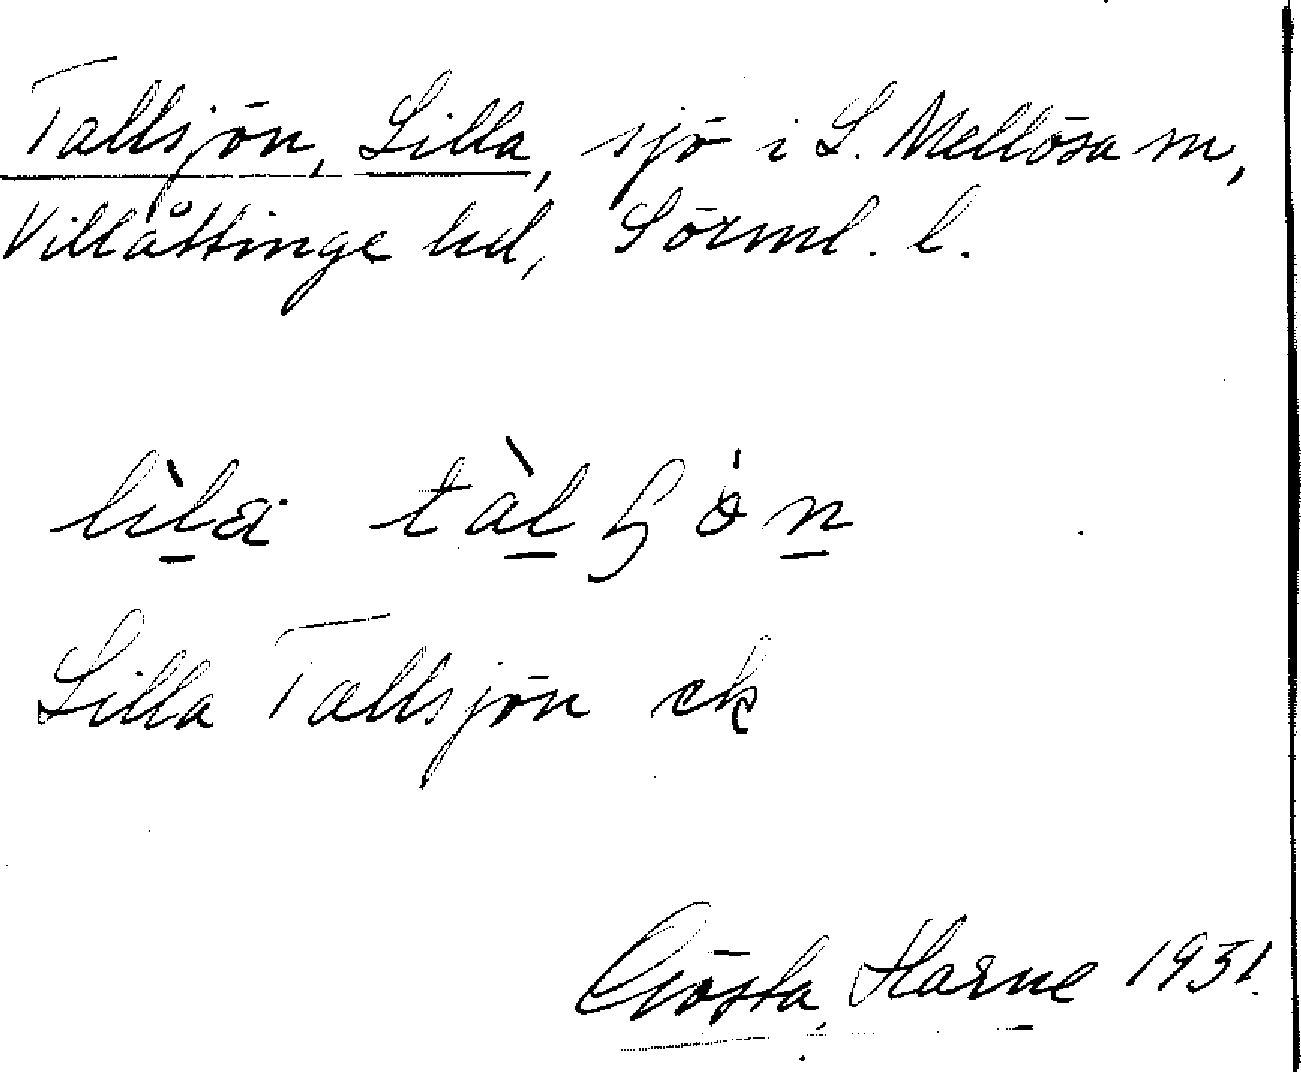 Tallsjön, Lilla, sjö i L. Mellösa sn,
Villåttinge hd, Sörml. l.
lìla tàl ʃ ó n
Lilla Tallsjön ek
Gösta Harne 1931.